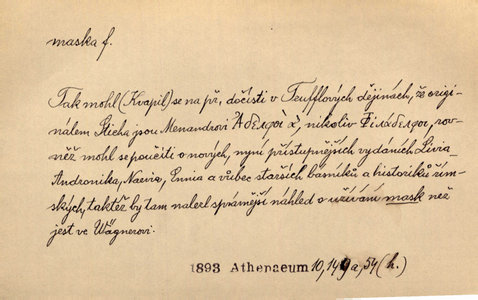 maska f.
Tak mohl (Kvapil) se na př. dočísti v Teufflových dějinách, že origi-
nálem Sticha jsou Menandrovi Ἀδελφοὶ, nikoliv Φιλάδελφοι, rov-
něž mohl se poučiti o nových, nyní přístupnějších vydáních Livia
Andronika, Naevia, Ennia a vůbec starších básníků a historiků řím-
ských, taktéž by tam nalezl správnější náhled o užívání mask než
jest ve Wágnerovi.
1893 Athenaeum 10, 149a, 54 (h.)